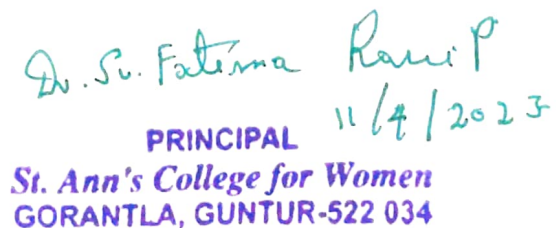 Dr. Sr. Fatima Rani P
11/4/2023
PRINCIPAL
St. Ann's College for Women
GORANTLA, GUNTUR-522 034